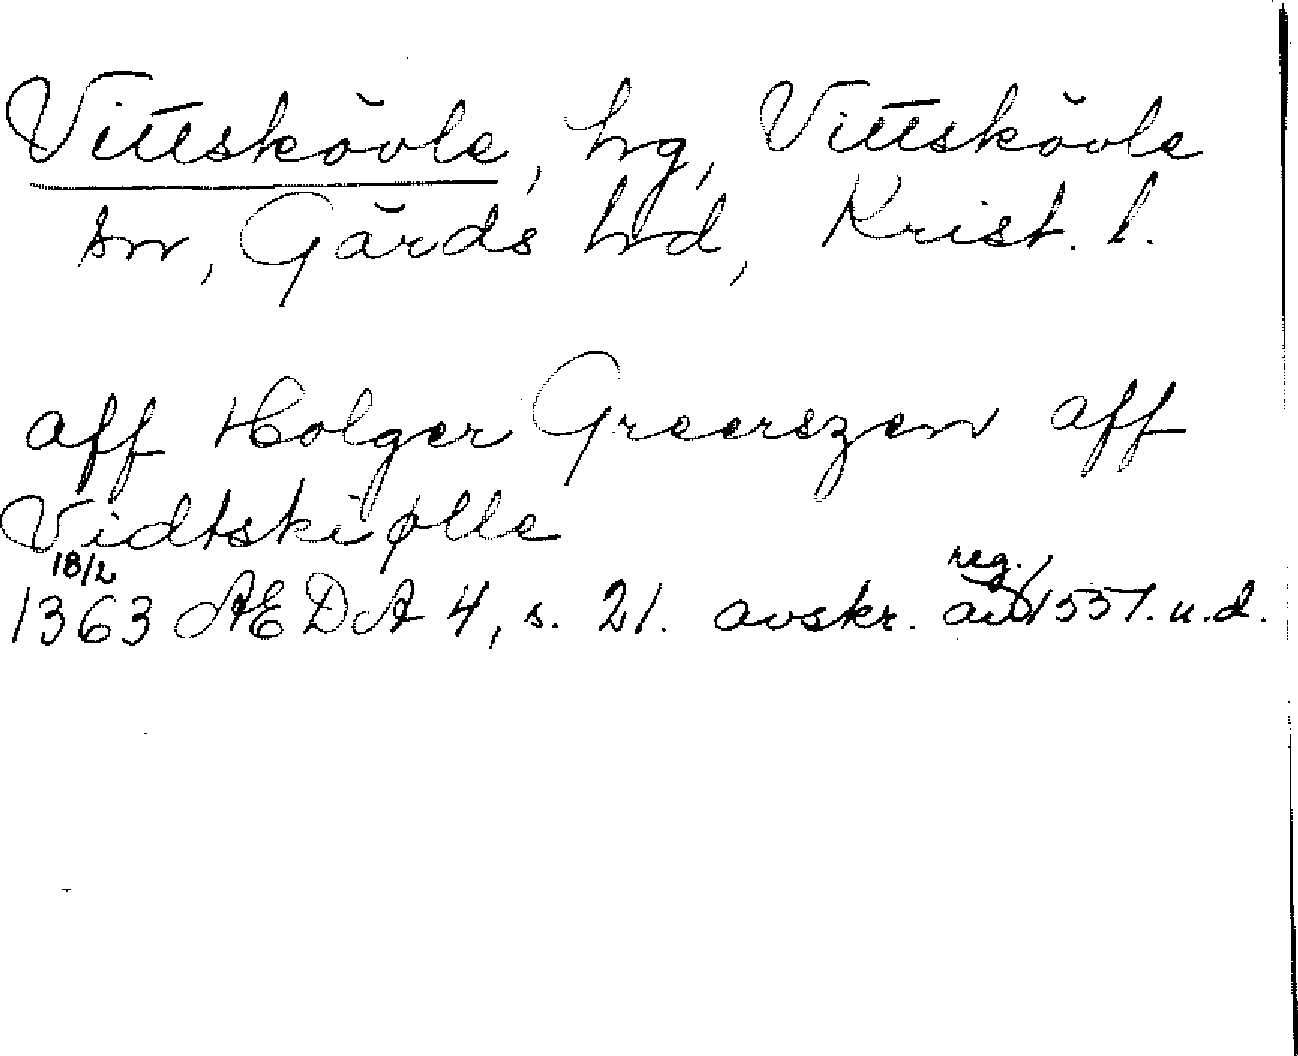 Vittskövle, hg, Vittskövle
sn, Gärds hd, Krist. l.
aff Holger Greerszen aff
Vidtskiølle
18/2 reg.
1363 ÆDA 4, s. 21. avskr. av 1551. u.d.